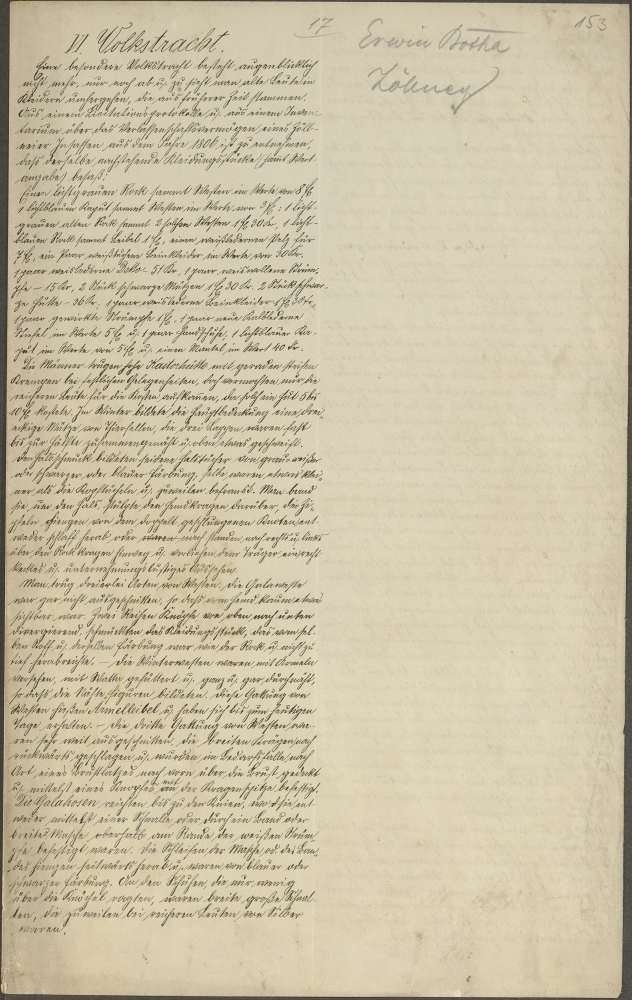 17
153
Erwin Botha
Zöbney
VI. Volkstracht.
Eine besondere Volkstracht besteht augenblicklich
nicht mehr, nur noch ab u. zu sieht man alte Leute in
Kleidern umhergehen, die aus früherer Zeit stammen.
Aus einem Licitationsprotokolle, u. aus einem Inven-
tarium über das Verlassenschaftsvermögen eines
Insassen, aus dem Jahre 1806 ist zu entnehmen,
daß derselbe nachstehende Kleidungsstücke samt Wert-
angabe besaß:
Einen lichtgrauen Rock sammt Westen im Werte von 8 fl,
1 lichtblauen Kaput sammt Westen im Werte von 3 fl; 1 licht-
grauen alten Rock sammt 2 solchen Westen 1 fl 30 Kr, 1 licht-
blauen Rock sammt Leibel 1 fl, einen weißledernen Pelz für
7 fl, ein Paar Beinkleider im Werte von 30 Kr.
1 paar weislederne 51 Kr, 1 paar weiswollene Strüm-
pfe – 15 Kr, 2 Stück schwarze Mützen 1 fl 30 Kr. 2 Stück schwar-
ze Hüte – 36 Kr. 1 paar weislederne Beinkleider 1 fl 30 Kr,
1 paar gewirkte Strümpfe 1 fl. 1 paar neue Kalblederne
Stiefel im Werte 5 fl u. 1 paar Handschuhe, 1 lichtblauer Ka-
put im Werte von 5 fl u. einen Mantel im Wert 40 Kr.
Die Männer trugen hohe Kastorhüte mit geraden steifen
Krempen bei festlichen Gelegenheiten, doch vermochten nur die
reicheren Leute für die Kosten aufkommen, da solch ein Hut 5 bis
10 fl kostete. Im Winter bildete die Hauptbedeckung eine drei-
eckige Mütze von Tierfellen, die drei Lappen waren fast
bis zur Hälfte zusammengenäht u. oben etwas geschweift.
Den Halsschmuck bildeten seidene Halstücher von grau-weißer
oder schwarzer oder blauer Färbung, selbe waren etwas klei-
ner als die Kopftücheln u. zuweilen befranst. Man band
sie um den Hals, stülpte den Hemdkragen darüber, die Zi-
pfeln hiengen von dem doppelt geschlungenen Knoten, ent-
weder schlaff herab oder waren nach rechts u. links
über den Rockkragen hinweg u. verliehen dem Träger ein recht
keckes u. unternehmungslustiges Aussehen.
Man trug dreierlei Arten von Westen: die Galaweste
war gar nicht ausgeschnitten, so daß vom Hemd kaum etwas
sichtbar war. Zwei Reihen Knöpfe von oben nach unten
divergierend, schmückten das Kleidungsstück, das vom sel-
ben Stoff u. derselben Färbung war wie der Rock u. nicht zu
tief herabreichte. – Die Winterwesten waren mit Ärmeln
versehen, mit Watte gefüttert u. ganz u. gar durchnäht,
so daß die Nähte Figuren bildeten. Diese Gattung von
Westen hießen Ärmelleibel u. haben sich bis zum heutigen
Tage erhalten. – Die dritte Gattung von Westen wa-
ren sehr weit ausgeschnitten, die breiten Krägen nach
rückwärts geschlagen u. wurden im Bedarfsfalle nach
Art eines Brustlatzes nach vorn über die Brust gedeckt
u. mittelst eines Knopfes mit der Kragenspitze befestigt.
Die Galahosen reichten bis zu den Knien, wo sie ent-
weder mittelst einer Schnalle oder durch ein Band oder
breites Masche oberhalb am Rande der weißen Strüm-
pfe befestigt waren. Die Schleifen der Masche od. des Ban-
des hiengen seitwärts herab u. waren von blauer oder
schwarzer Färbung. An den Schuhen, die nur wenig
über die Knöchel ragten, waren breite große Schnal-
len, die zuweilen bei reicheren Leuten von Silber
waren.